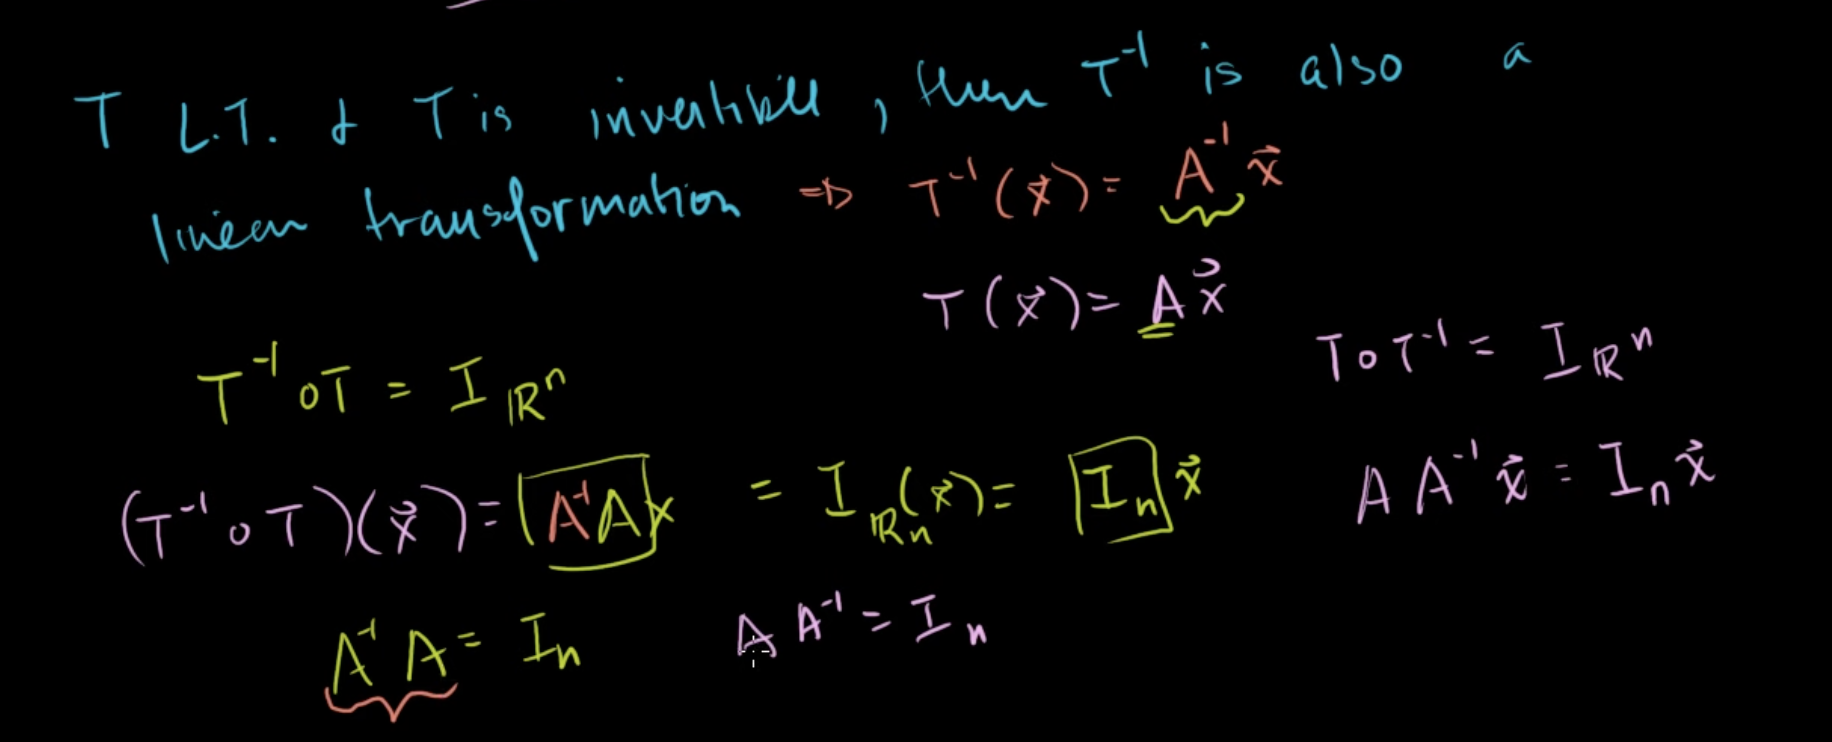 T L.T. & T is invertible, then T⁻¹ is also a
linear transformation ⇒ T⁻¹(x⃗) = A⁻¹x⃗
T(x⃗) = Ax⃗
T⁻¹∘T = I_ℝⁿ
T∘T⁻¹ = I_ℝⁿ
(T⁻¹∘T)(x⃗) = A⁻¹Ax = I_ℝn(x⃗) = Iₙx⃗
AA⁻¹x⃗ = Iₙx⃗
A⁻¹A = Iₙ
AA⁻¹ = Iₙ